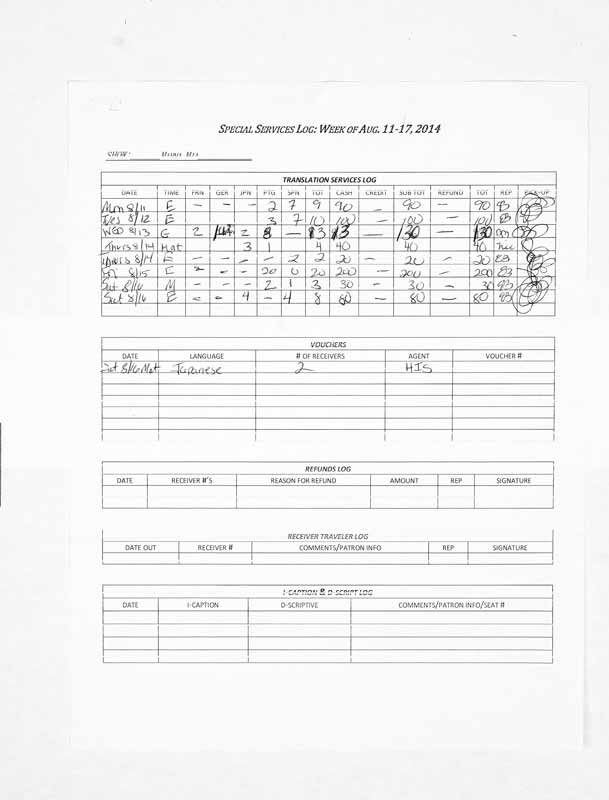 SPECIAL SERVICES LOG: WEEK OF AUG. 11-17, 2014
SHOW: MAMMA MIA
TRANSLATION SERVICES LOG
DATE TIME FRN GER JPN PTG SPN TOT CASH CREDIT SUB TOT REFUND TOT REP PICK-UP
Mon 8/11 E – – – 2 7 9 90 – 90 – 90
Tues 8/12 E 3 7 10 100 100 – 100 EB
WED 8/13 2 2 8 – 13 13 — 130 — 130
Thurs 8/14 Mat 3 1 4 40 40 40
Thurs 8/14 E – – – – 2 2 20 – 20 – 20 EB
8/15 E – – – 20 0 20 200 – 200 – 200 EB
Sat 8/16 M – – – 2 1 3 30 – 30 – 30
Sat 8/16 E – – 4 – 4 8 80 – 80 – 80
VOUCHERS
DATE LANGUAGE # OF RECEIVERS AGENT VOUCHER #
Sat 8/16 Mat Japanese 2 HIS
REFUNDS LOG
DATE RECEIVER #'S REASON FOR REFUND AMOUNT REP SIGNATURE
RECEIVER TRAVELER LOG
DATE OUT RECEIVER # COMMENTS/PATRON INFO REP SIGNATURE
I-CAPTION & D-SCRIPT LOG
DATE I-CAPTION D-SCRIPTIVE COMMENTS/PATRON INFO/SEAT #